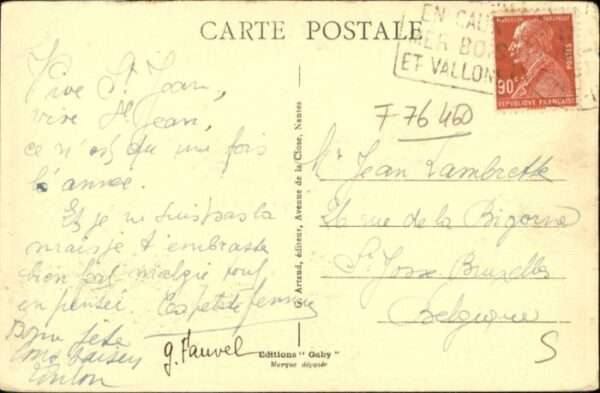 CARTE POSTALE
EN CAU
MER BOIS
ET VALLON
90c
POSTES
REPUBLIQUE FRANÇAISE
F 76 460
Vive St Jean,
vive St Jean,
ce n'est qu'une fois
l'année.
Et je ne suis pas là
mais je t'embrasse
bien fort malgré tout
en pensée. Ta petite femme
Bonne fête
Toulon
g. Fauvel
G. Artaud, éditeur, Avenue de la Close, Nantes
Mr Jean Lambrette
26 rue de la Bigorne
St Josse Bruxelles
Belgique
S
Editions "Gaby"
Marque déposée